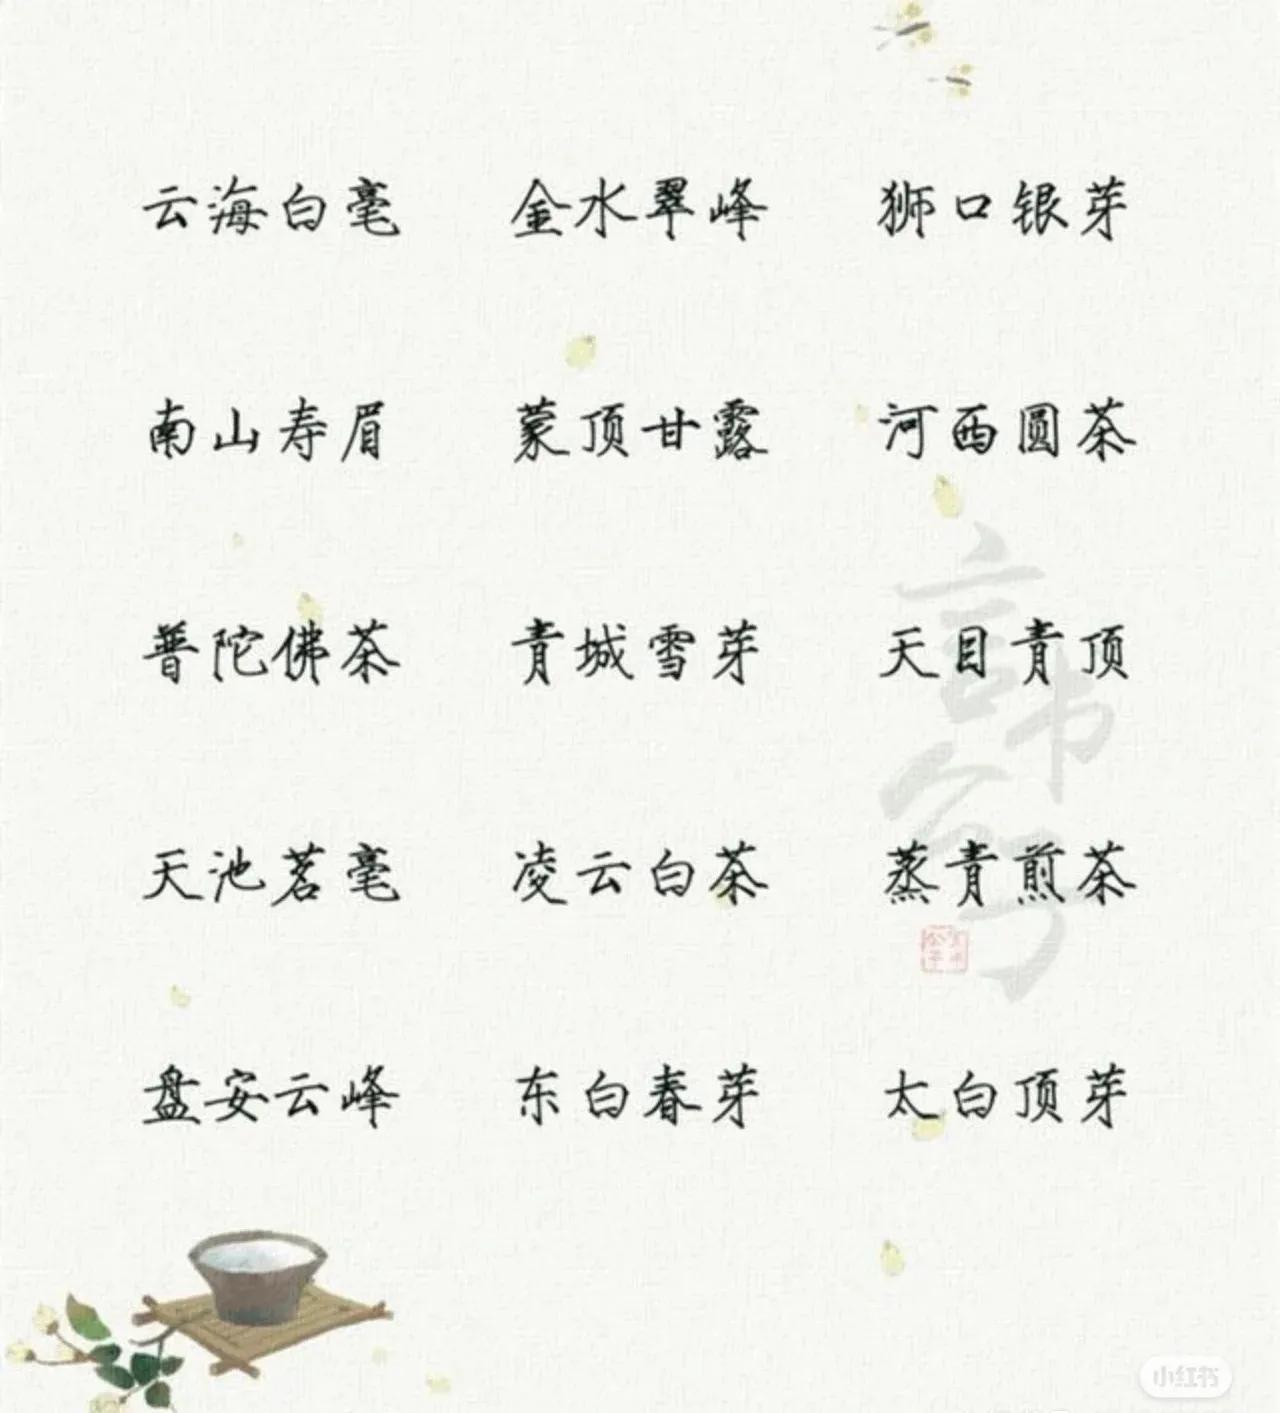 云海白毫 金水翠峰 狮口银芽
南山寿眉 蒙顶甘露 河西圆茶
普陀佛茶 青城雪芽 天目青顶
天池茗毫 凌云白茶 蒸青煎茶
盘安云峰 东白春芽 太白顶芽
小红书